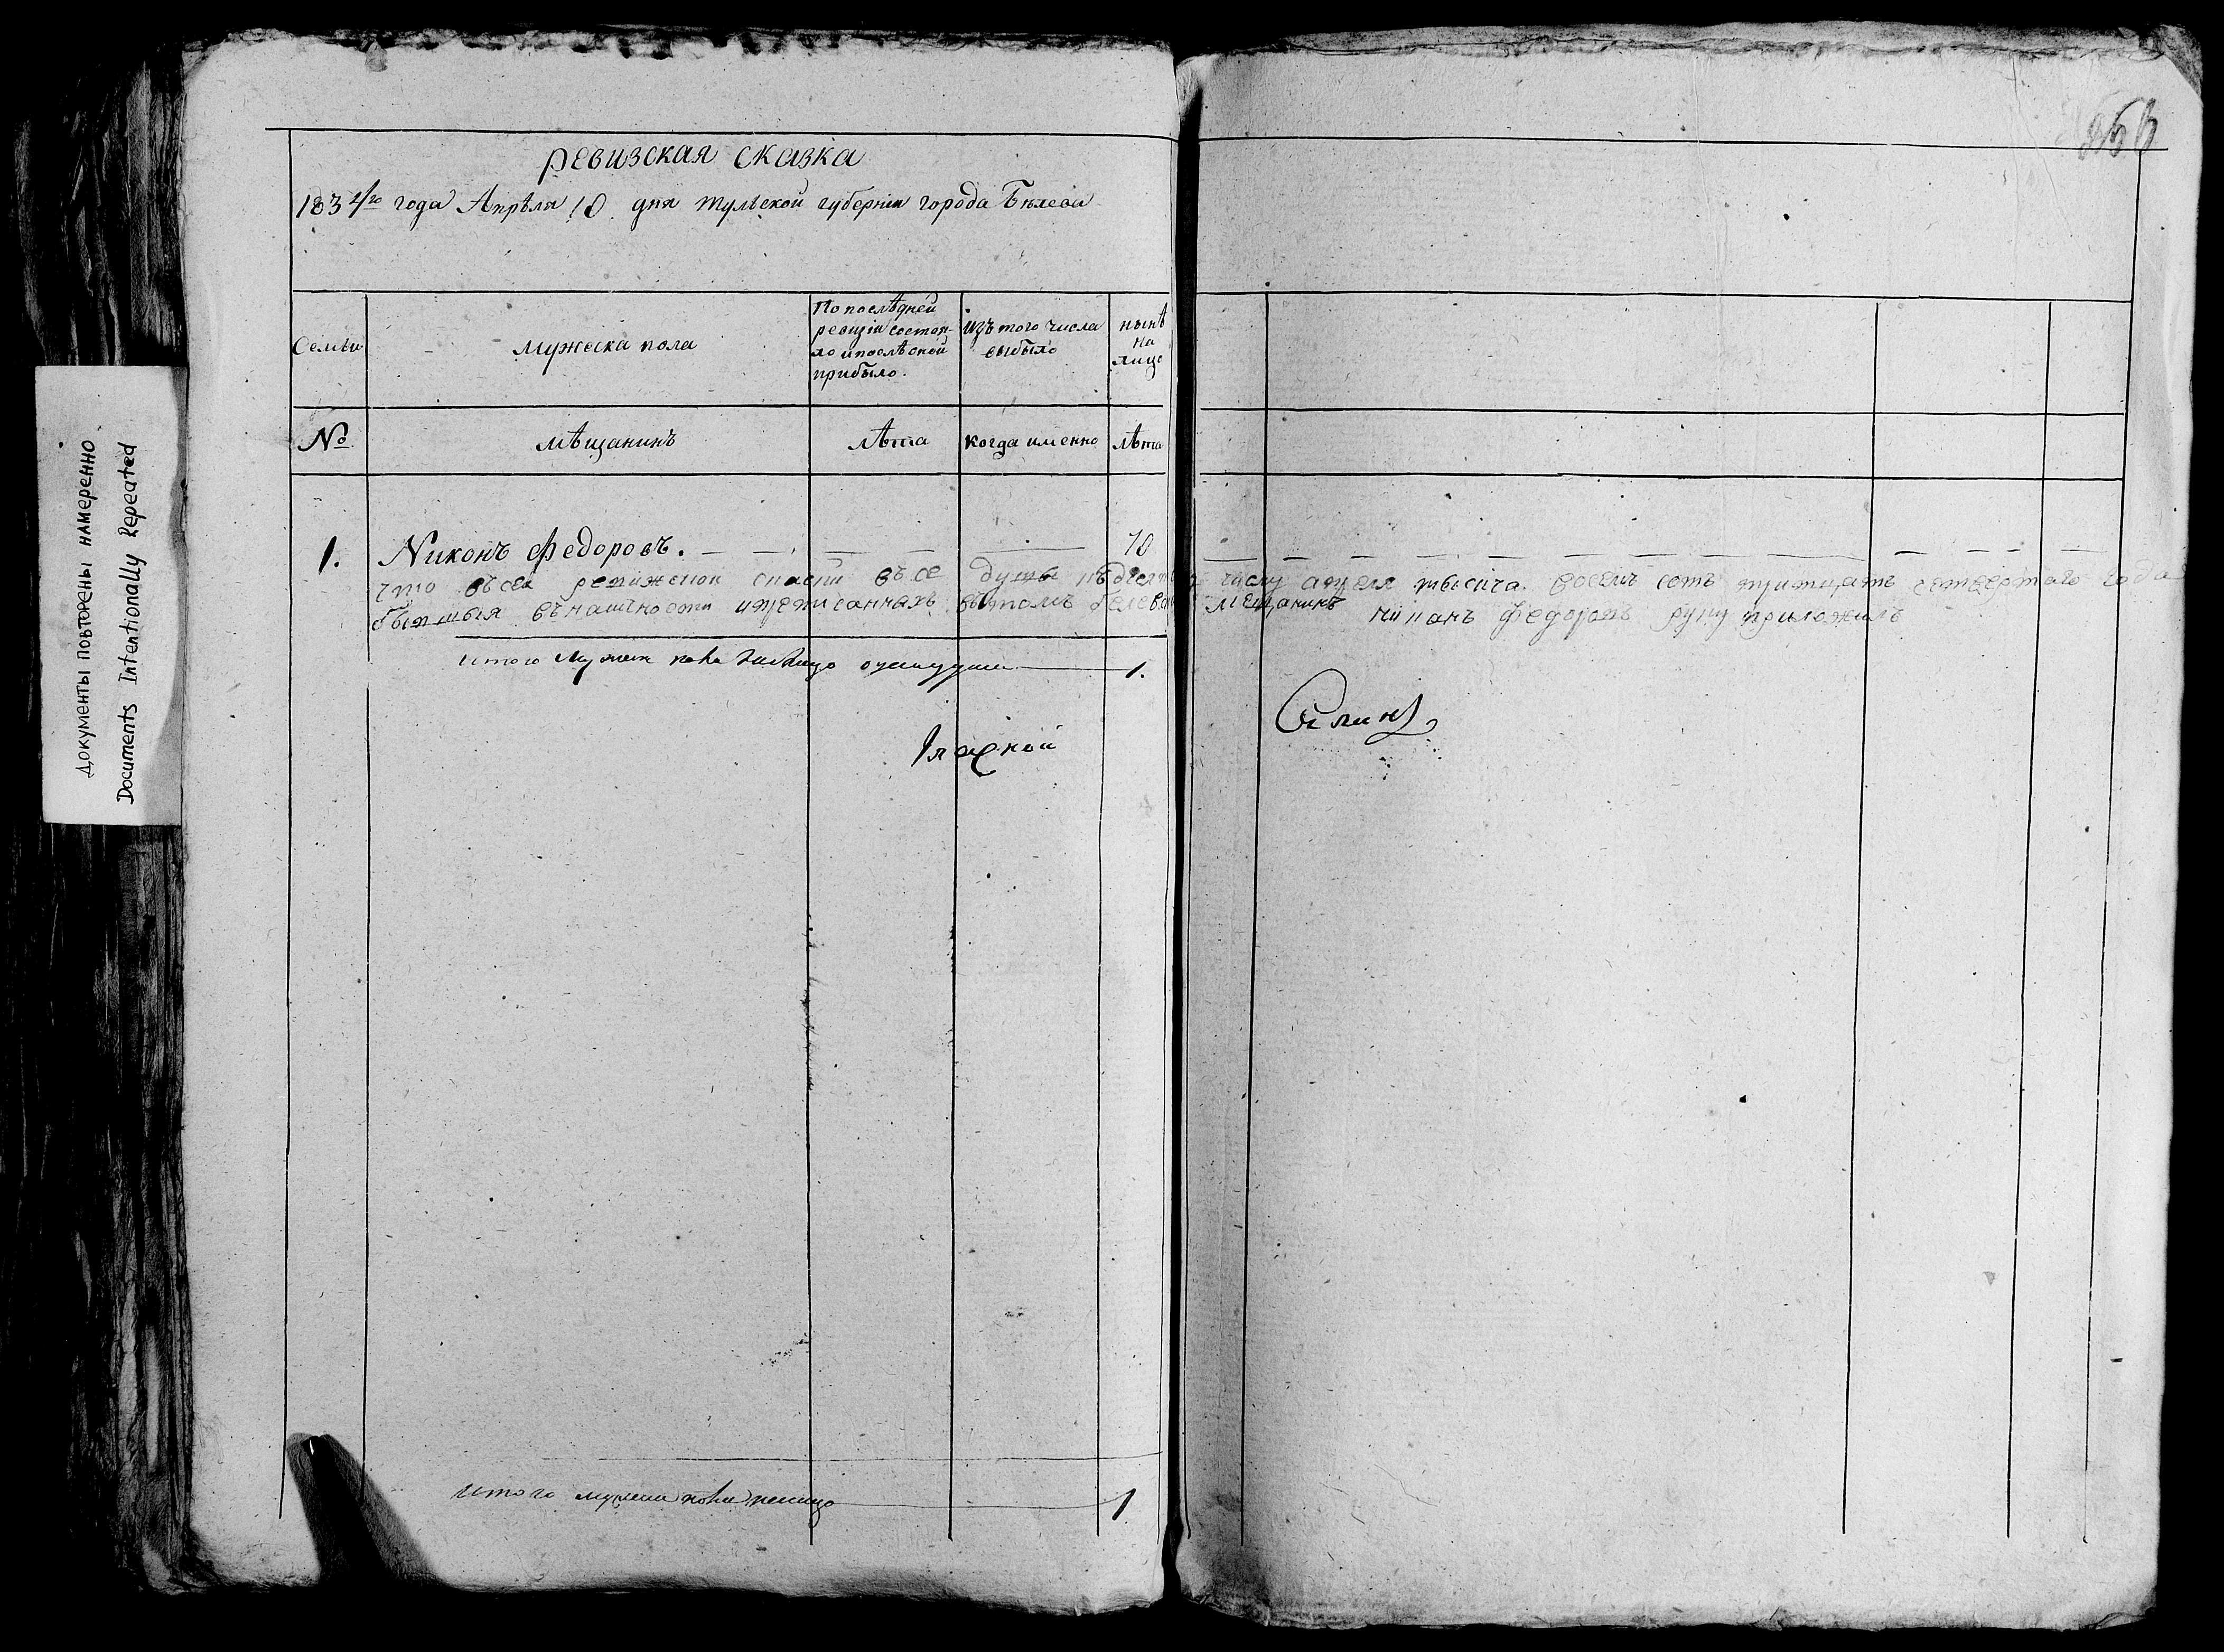 Документы повторены намеренно
Documents Intentionally Repeated
ревизская сказка
1834го года Апрѣля 10 дня Тульской губернiи города Бѣлева
Семьи
мужеска пола
По послѣдней
ревизiи состоя-
ло и послѣ оной
прибыло.
Изъ того числа
выбыло
нынѣ
на
лицо
№
мѣщанинъ
лѣта
когда именно
лѣта
1. Никонъ Федоровъ. 70
что въсеи душы къдесятому числу апреля тысiча восемь сотъ тритцать четвертаго года
бытныя въналичности Белевской мещанинъ Федоровъ руку приложилъ
итого мужеск пола налицо одна душа 1.
Гласной
итого мужеска пола налицо 1